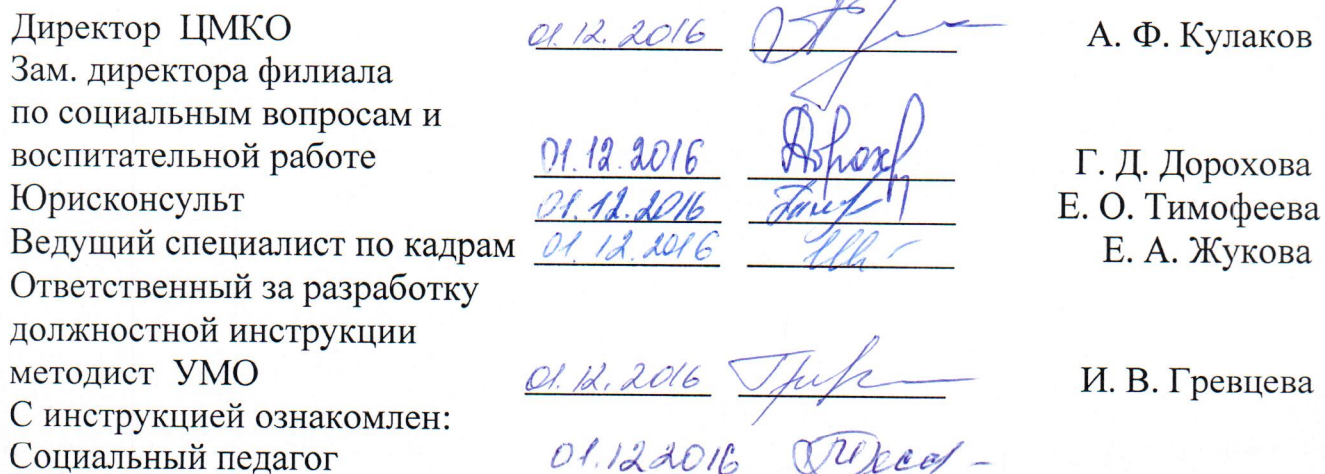 Директор ЦМКО 01.12.2016 А. Ф. Кулаков
Зам. директора филиала
по социальным вопросам и
воспитательной работе 01.12.2016 Дорох Г. Д. Дорохова
Юрисконсульт 01.12.2016 Е. О. Тимофеева
Ведущий специалист по кадрам 01.12.2016 Е. А. Жукова
Ответственный за разработку
должностной инструкции
методист УМО 01.12.2016 И. В. Гревцева
С инструкцией ознакомлен:
Социальный педагог 01.12.2016